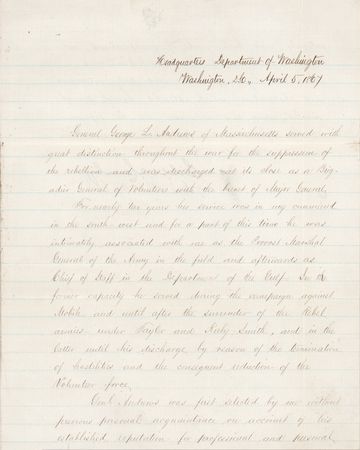 Headquarters Department of Washington
Washington, D.C., April 5, 1867
General George L. Andrews of Massachusetts served with
great distinction throughout the war for the suppression of
the rebellion and was discharged at its close as a Brig-
adier General of Volunteers with the brevet of Major General.
For nearly two years his service was in my command
in the south west and for a part of this time he was
intimately associated with me as the Provost Marshal
General of the Army in the field and afterwards as
Chief of Staff in the Department of the Gulf. In the
former capacity he served during the campaign against
Mobile and until after the surrender of the Rebel
armies under Taylor and Kirby Smith, and in the
latter until his discharge by reason of the termination
of hostilities and the consequent reduction of the
Volunteer force.
Genl Andrews was first selected by me without
previous personal acquaintance on account of his
established reputation for professional and personal